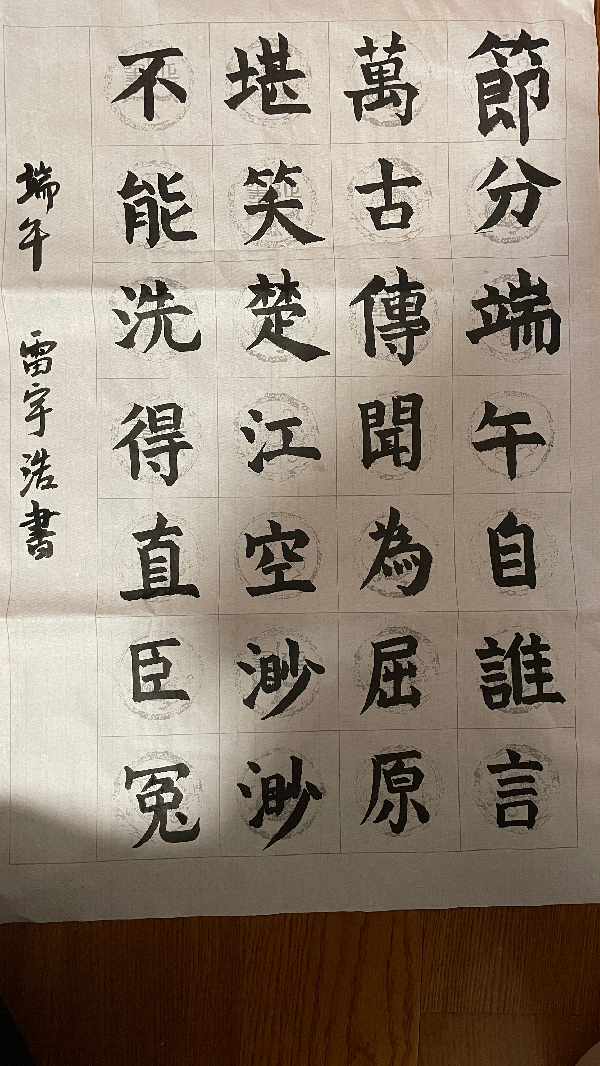 節分端午自誰言
萬古傳聞為屈原
堪笑楚江空渺渺
不能洗得直臣冤
端午 雷宇浩書